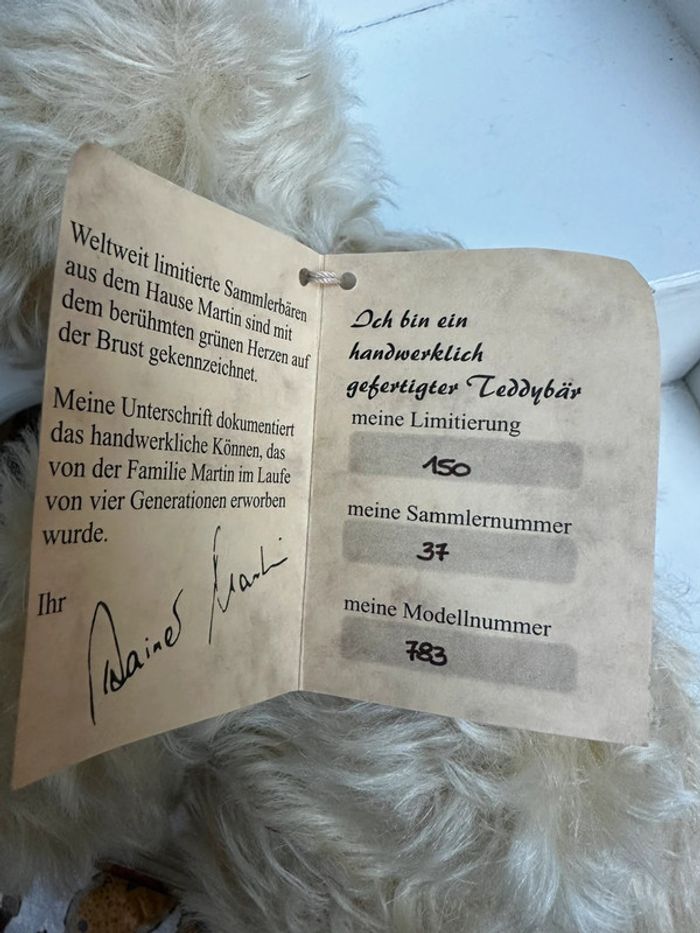 Weltweit limitierte Sammlerbären
aus dem Hause Martin sind mit
dem berühmten grünen Herzen auf
der Brust gekennzeichnet.
Meine Unterschrift dokumentiert
das handwerkliche Können, das
von der Familie Martin im Laufe
von vier Generationen erworben
wurde.
Ihr
Rainer Martin
Ich bin ein
handwerklich
gefertigter Teddybär
meine Limitierung
150
meine Sammlernummer
37
meine Modellnummer
783